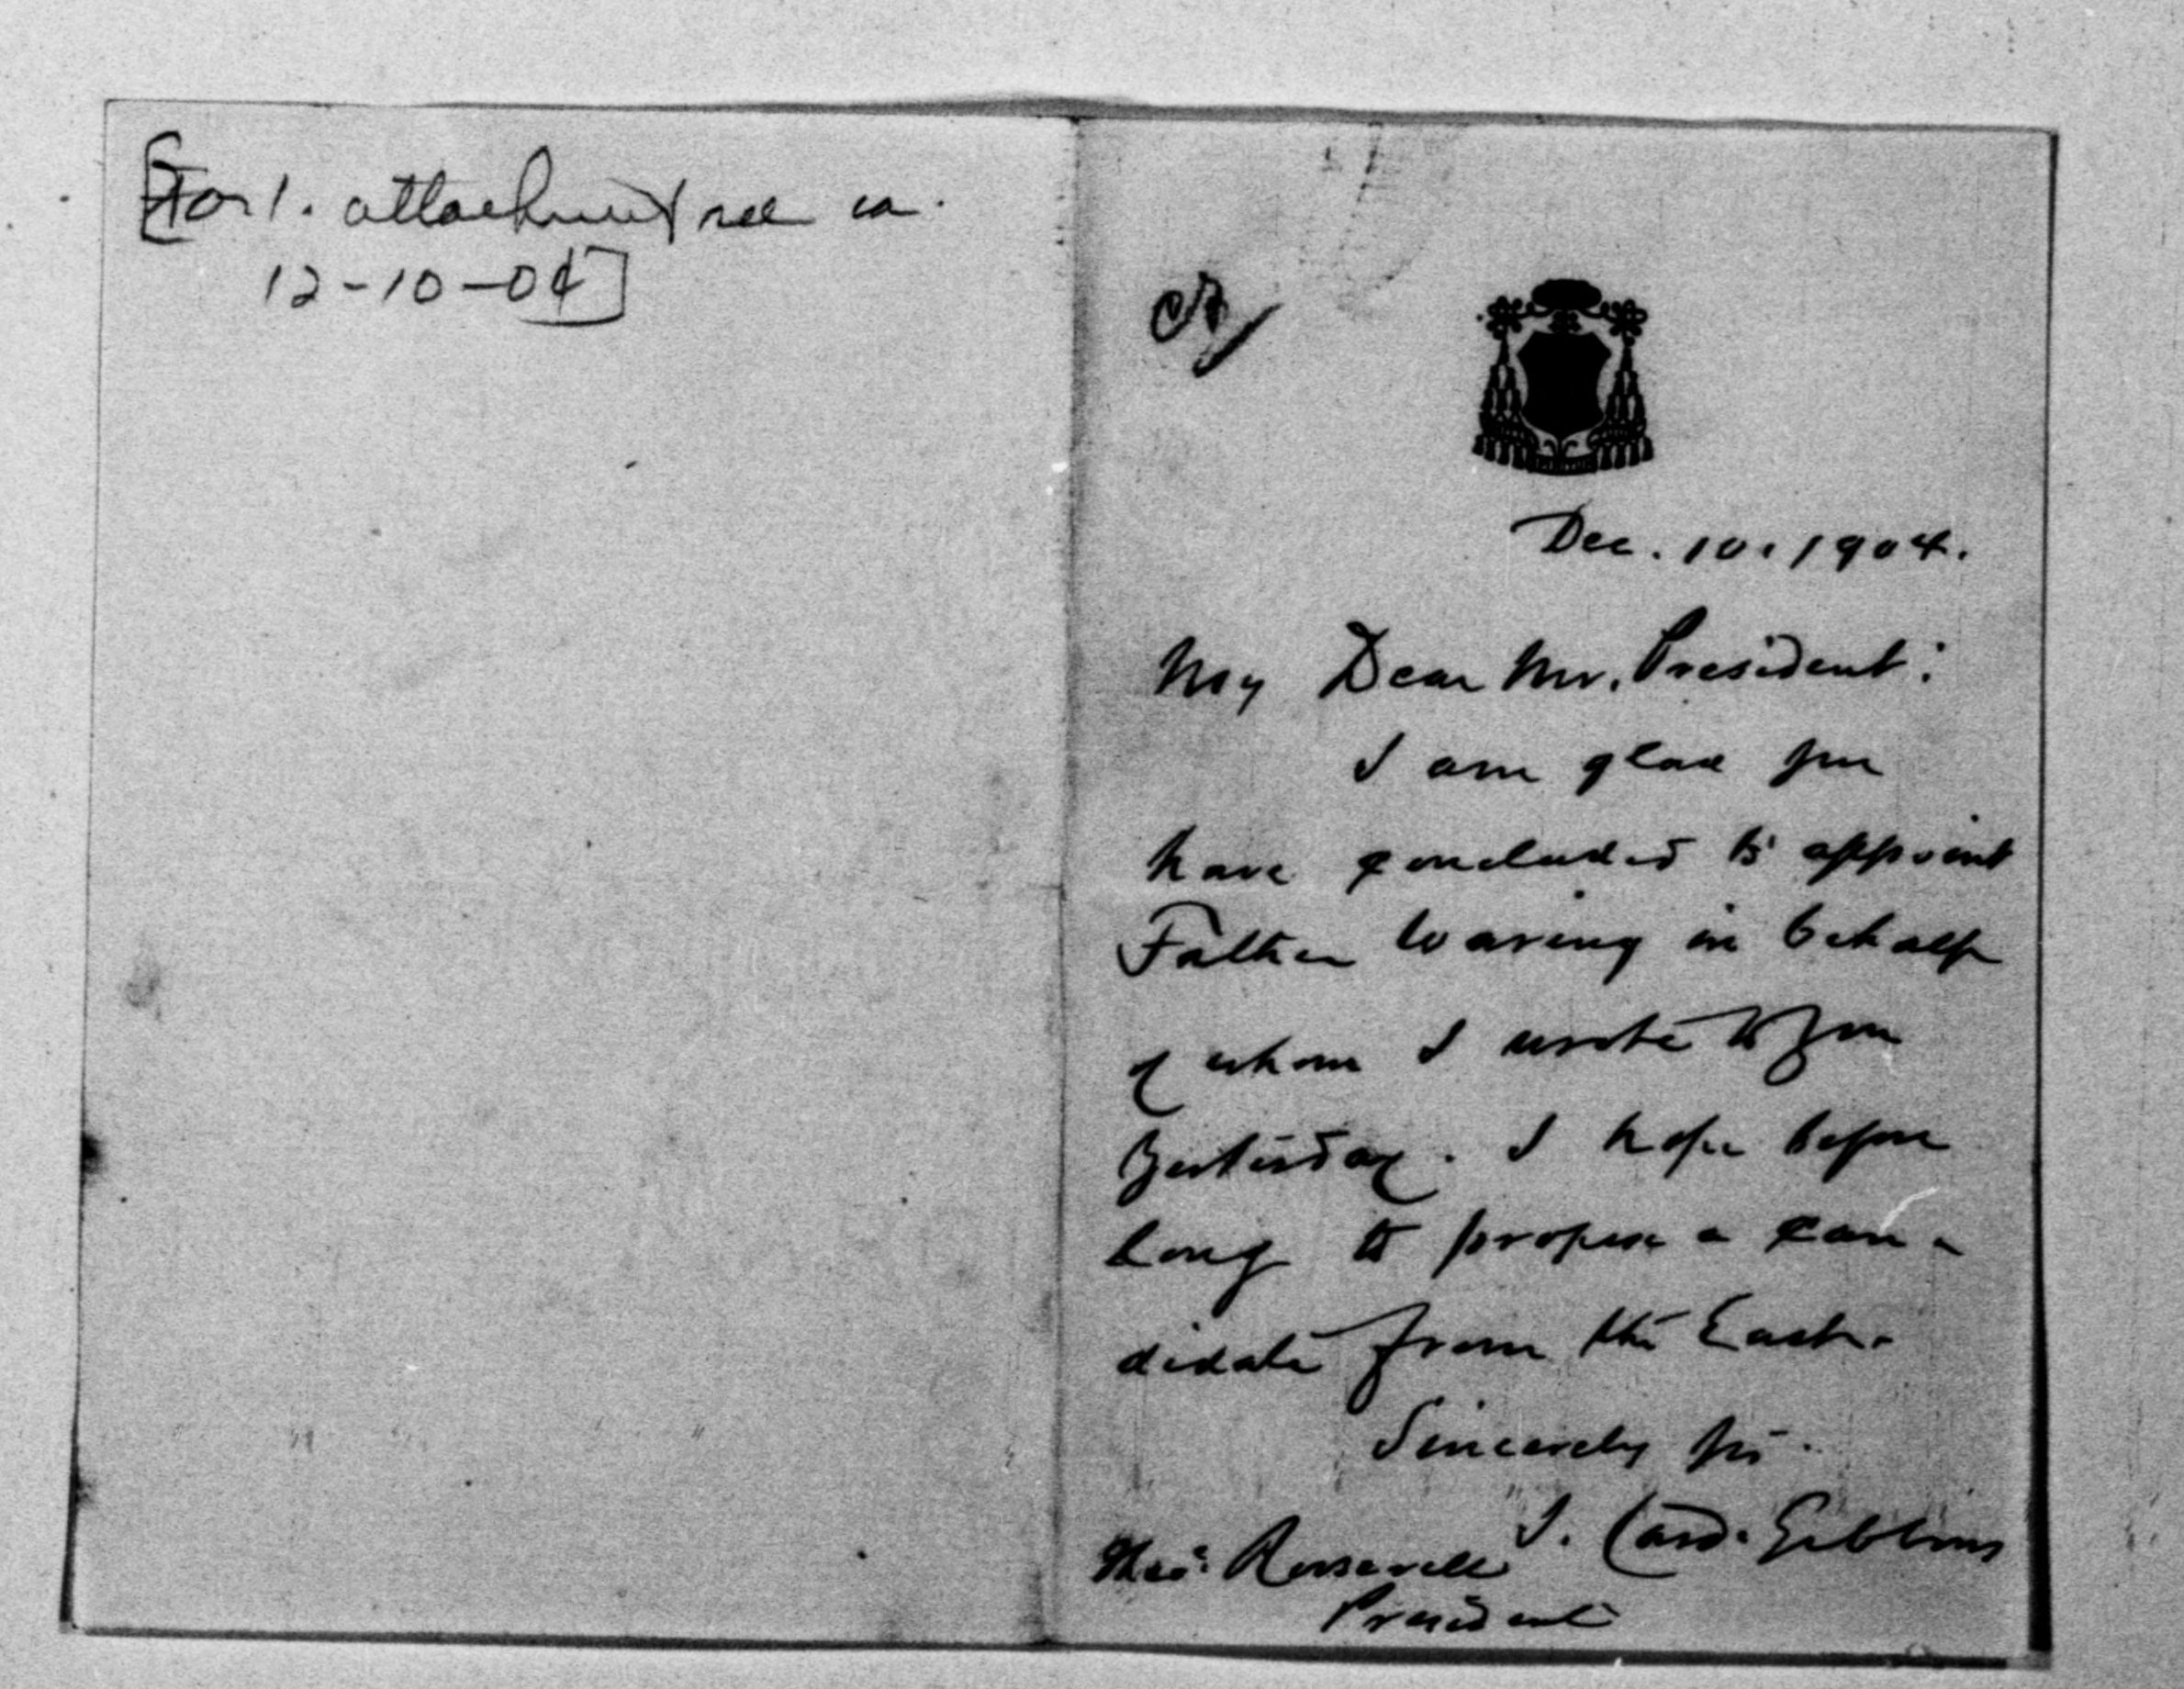 [For 1. attachment see ca.
12-10-04]
Dec. 10. 1904.
My Dear Mr. President:
I am glad you
have concluded to appoint
Father Waring in behalf
of whom I wrote to you
Yesterday. I hope before
long to propose a can-
didate from the East.
Sincerely Yrs.
J. Card. Gibbons
Theo: Roosevelt
President